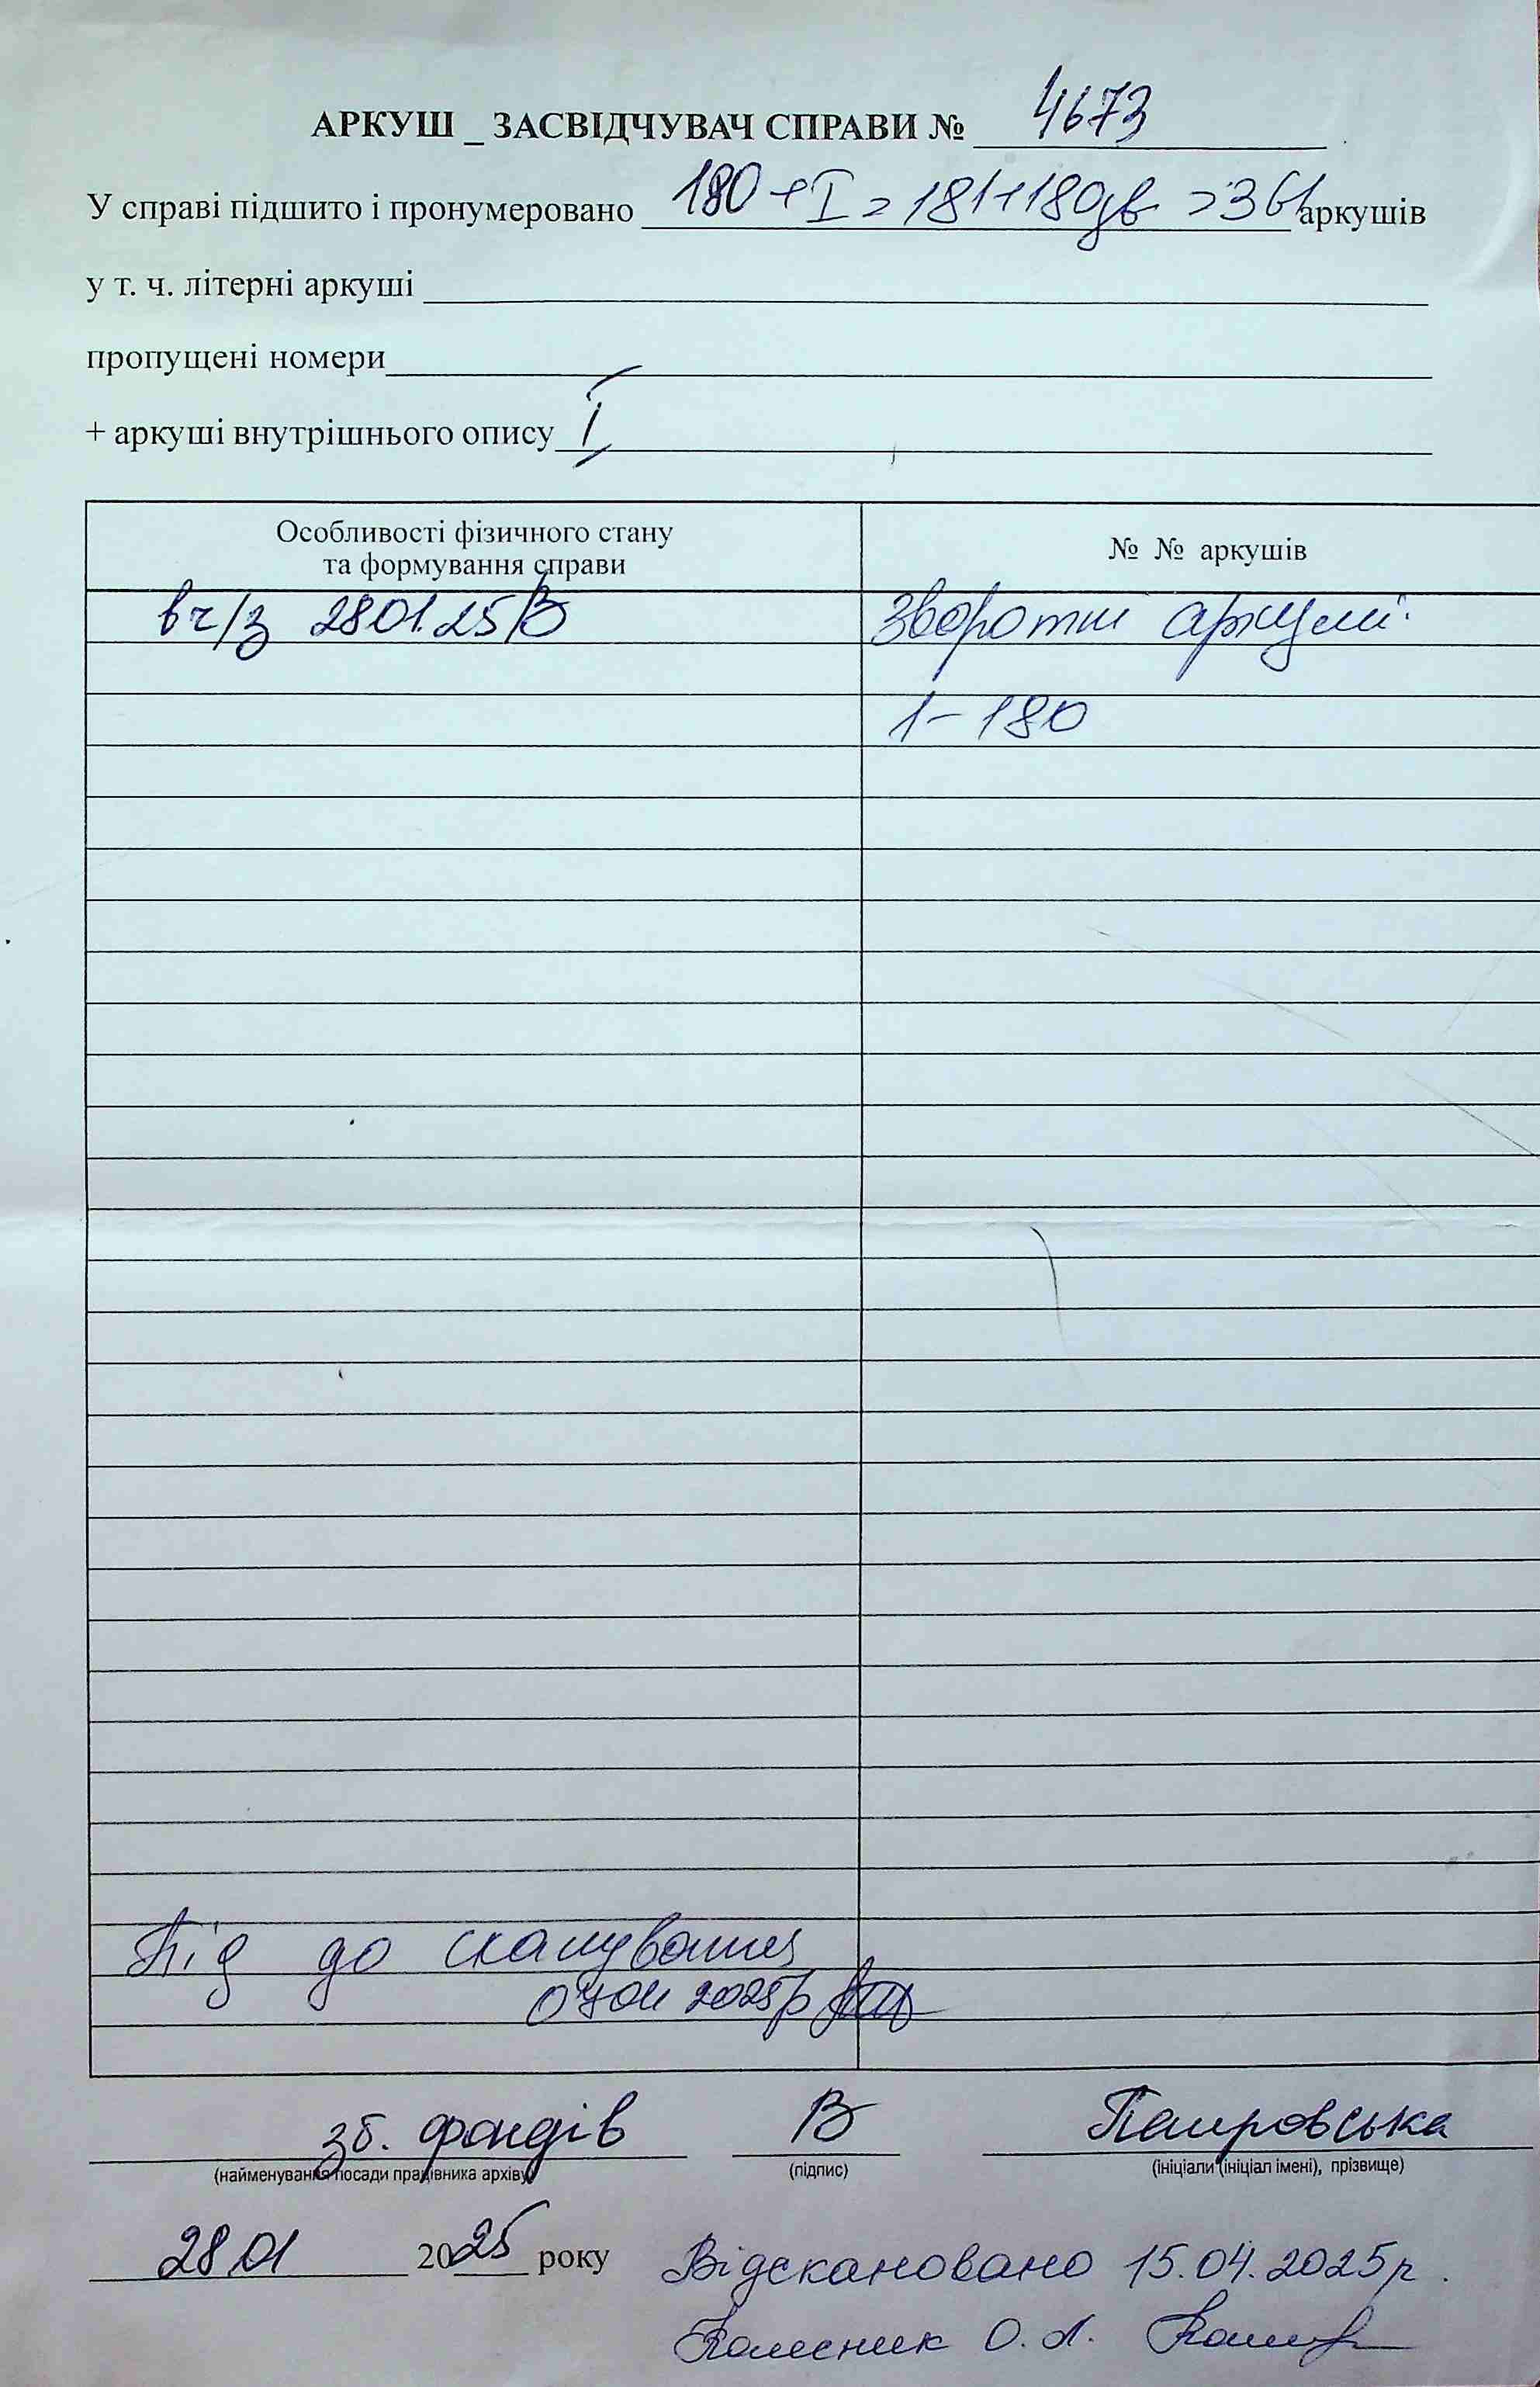 АРКУШ _ ЗАСВІДЧУВАЧ СПРАВИ № 4673
У справі підшито і пронумеровано 180 + I = 181 + 180 дв = 361 аркушів
у т. ч. літерні аркуші
пропущені номери
+ аркуші внутрішнього опису I
Особливості фізичного стану та формування справи
№ № аркушів
вч/з 28.01.25 В
Зворотні аркуші
1 - 180
Під до сканування
2025р
зб. фондів В
(найменування посади працівника архіву) (підпис) (ініціали (ініціал імені), прізвище)
28 01 2025 року
Відскановано 15.04.2025р.
Колесник О. Л.